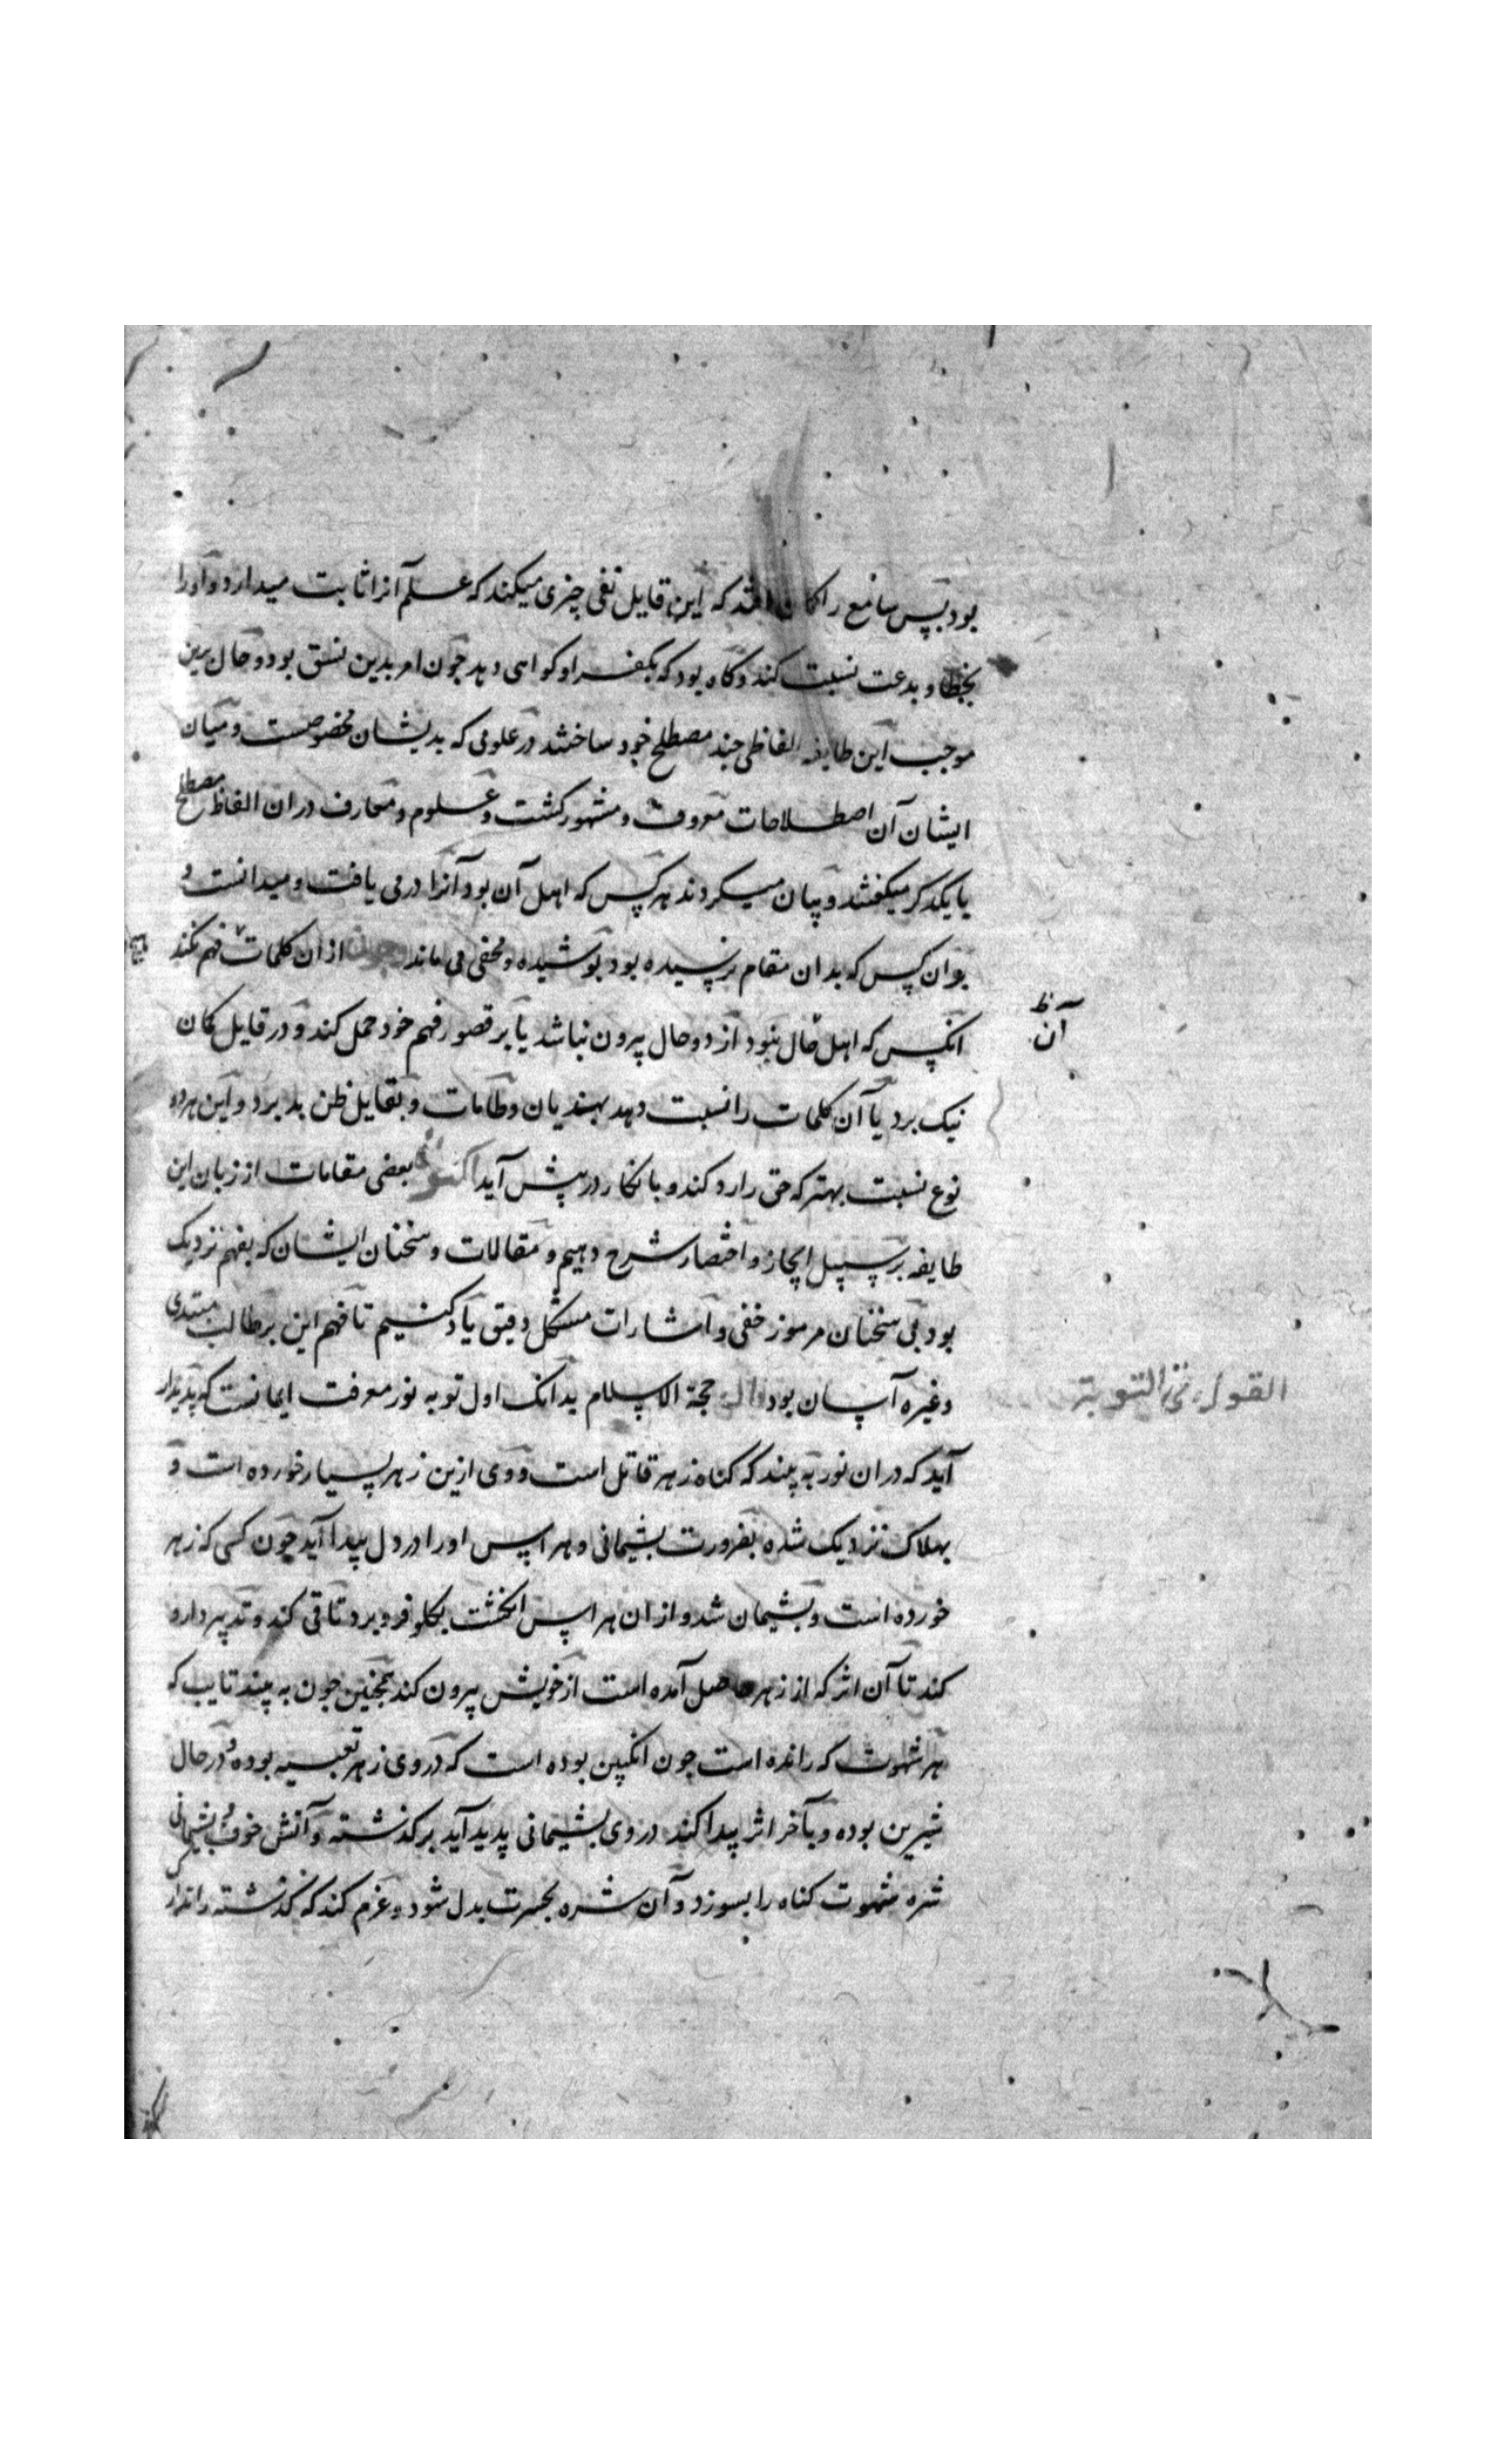 بود پس سامع را کمان افتد که این قایل نفی چیزی میکند که علم آنرا ثابت میدارد و او را
بخطا و بدعت نسبت کند و کاه بود که بکفر او کواهی دهد چون امر بدین نسق بود و حال برین
موجب این طایفه الفاظی چند مصطلح خود ساختند در علومی که بدیشان مخصوصست و میان
ایشان آن اصطلاحات معروف و مشهور کشت و علوم و معارف در ان الفاظ مصطلح
با یکدکر میکفتند و بیان میکردند هر کس که اهل آن بود آنرا درمی یافت و میدانست و
بر ان کس که بدان مقام نرسیده بود پوشیده و مخفی می ماند چون از ان کلمات فهم نکند
آن ظ
انکس که اهل حال نبود از دو حال بیرون نباشد یا بر قصور فهم خود حمل کند و در قایل کمان
نیک برد یا آن کلمات را نسبت دهد بهذیان و طامات و بقایل ظن بد برد و این هر دو
نوع نسبت بهتر که حق را رد کند و بانکار در پیش آید اکنون بعضی مقامات از زبان این
طایفه بر سبیل ایجاز و اختصار شرح دهیم و مقالات و سخنان ایشان که بفهم نزدیک
بود بی سخنان مرموز خفی و اشارات مشکل دقیق یاد کنیم تا فهم این بر طالب مبتدی
وغیره آسان بود قال حجة الاسلام بدانک اول توبه نور معرفت ایمانست که پدیدار
القول فی التوبة
آید که در ان نور به بیند که کناه زهر قاتل است و وی ازین زهر بسیار خورده است و
بهلاک نزدیک شده بضرورت پشیمانی و هراس او را در دل پیدا آید چون کسی که زهر
خورده است و پشیمان شد و از ان هراس انکشت بکلو فرو برد تا قی کند و تدبیر دارو
کند تا آن اثر که از زهر حاصل آمده است از خویش بیرون کند همچنین چون به بیند تایب که
هر شهوت که رانده است چون انکبین بوده است که در وی زهر تعبیه بوده و در حال
شیرین بوده و بآخر اثر پیدا کند در وی پشیمانی پدید آید بر کذشته و آتش خوف و پشیمانی
شره شهوت کناه را بسوزد و آن شره بحسرت بدل شود و عزم کند که کذشته را تدارک